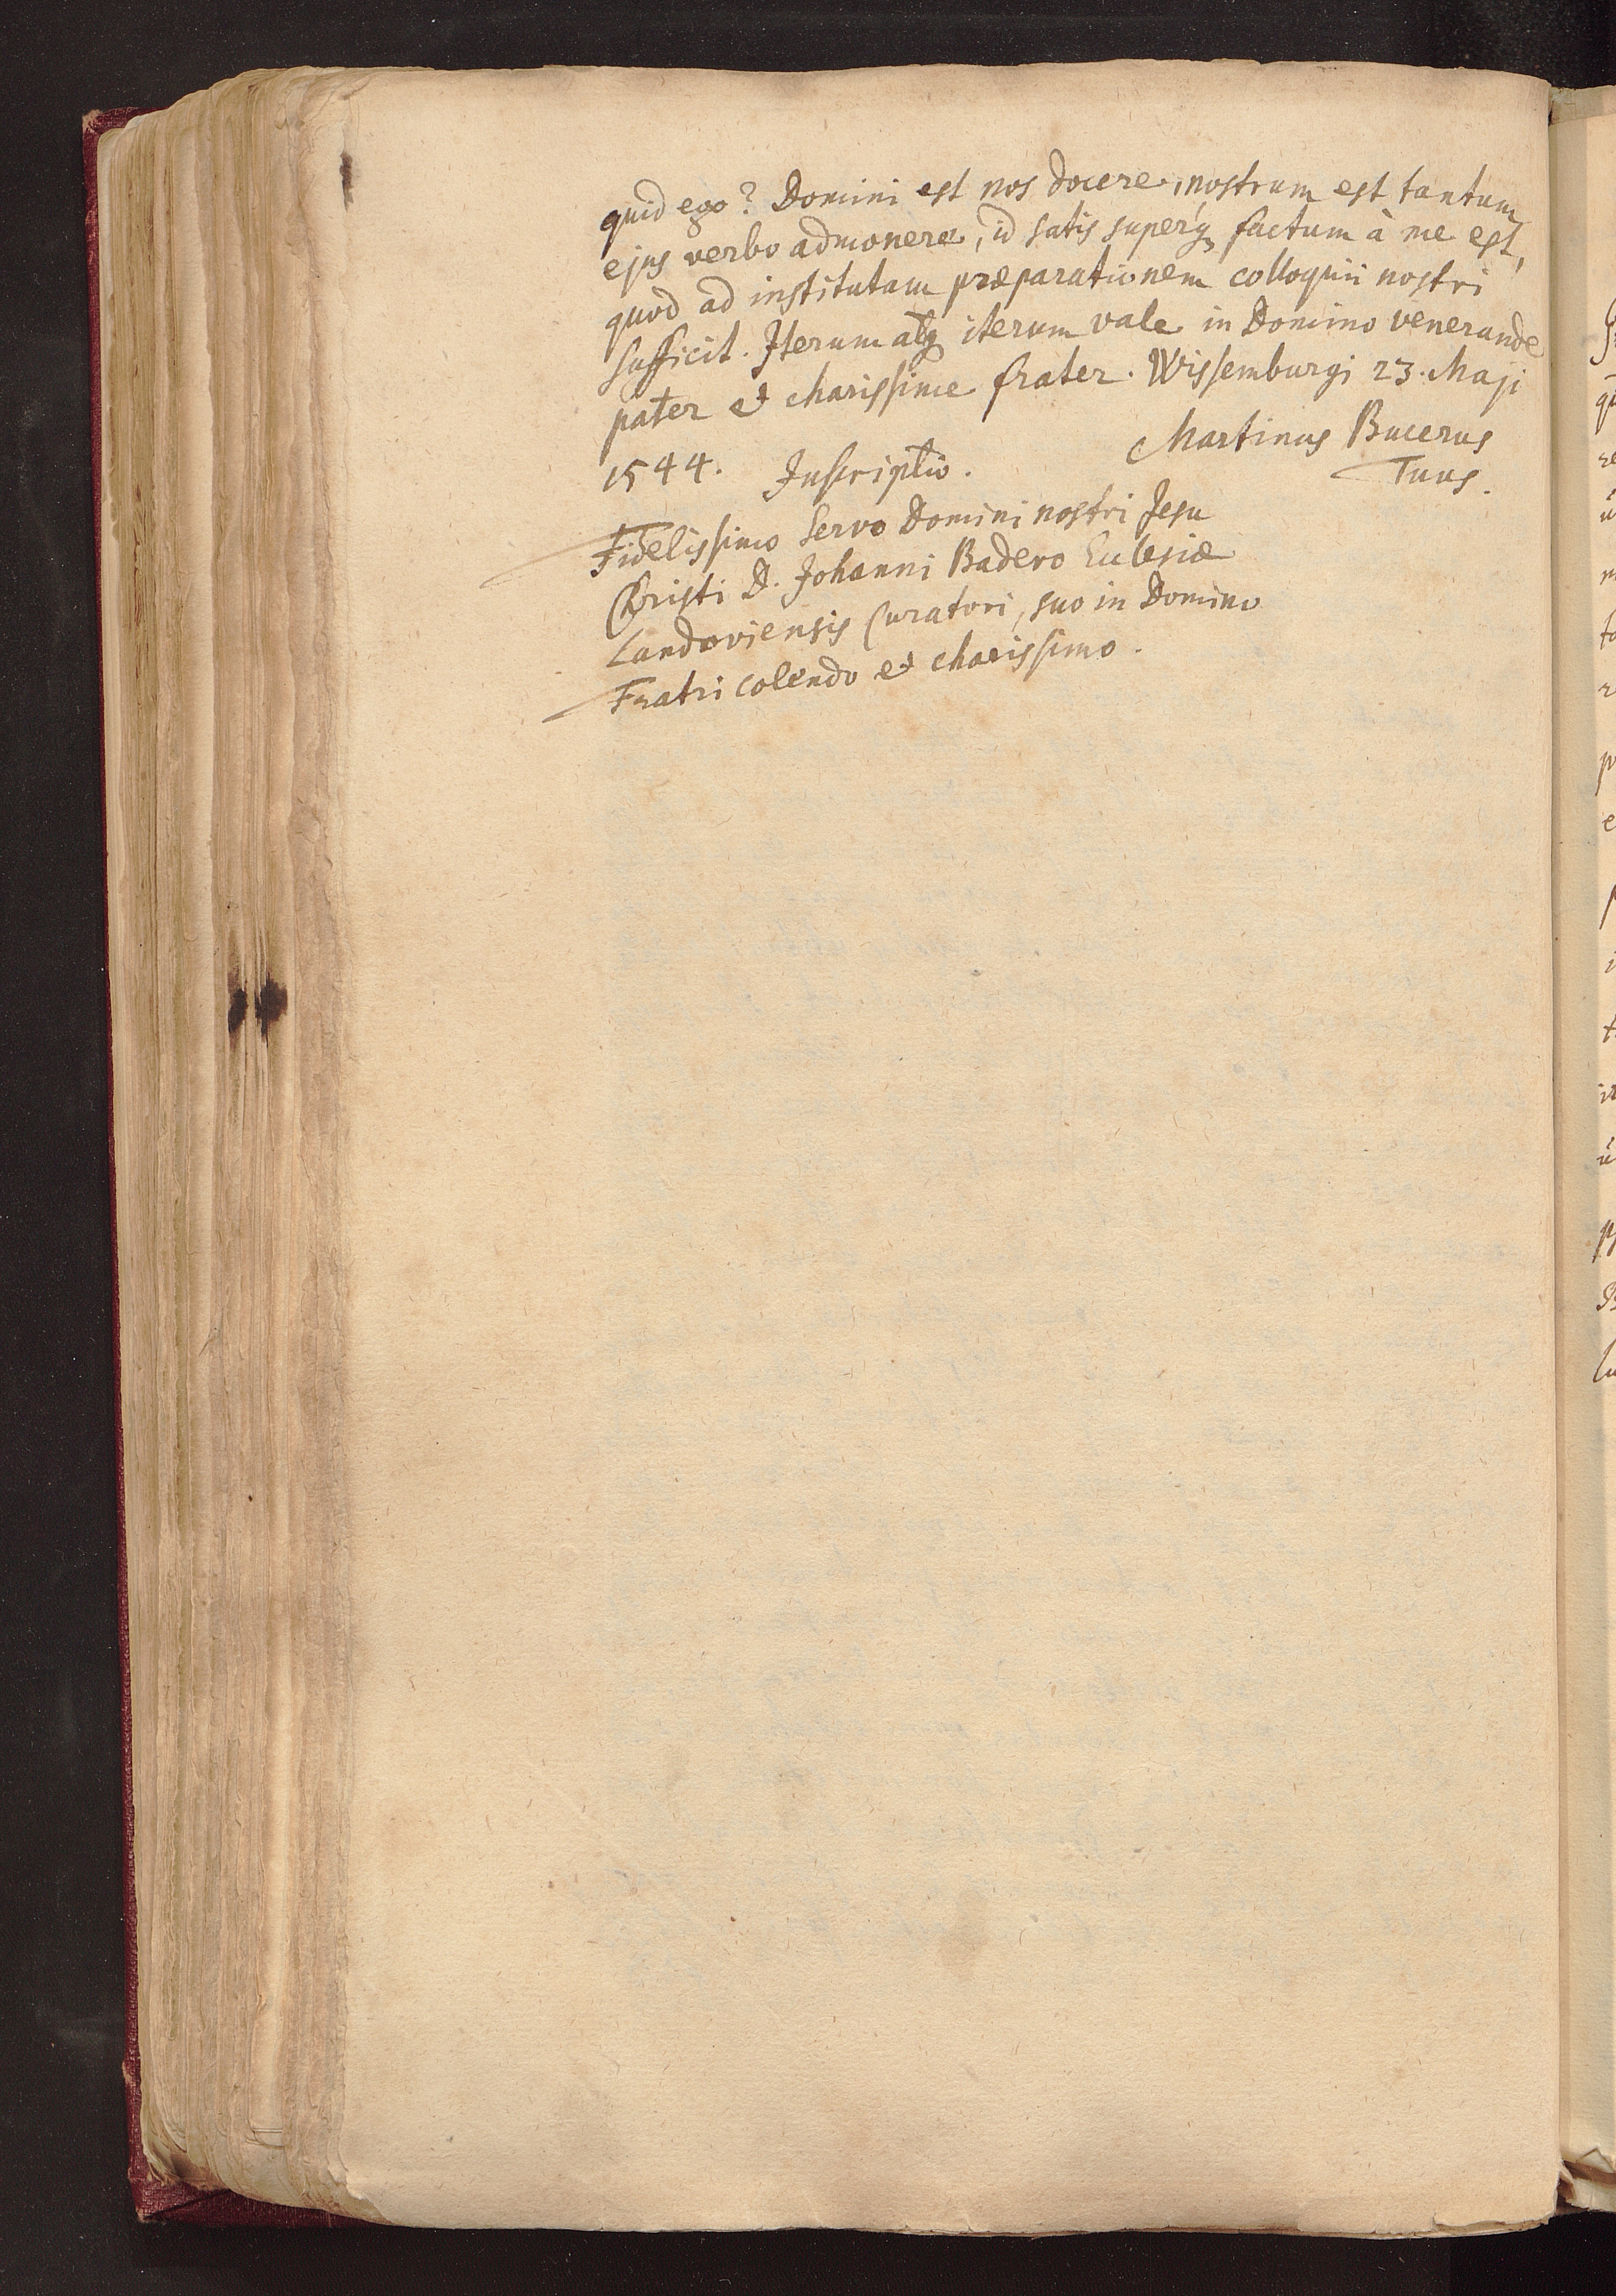 quid ego? Domini est nos docere, nostrum est tantum
ejus verbo admonere, id satis superq́; factum à me est,
quod ad institutam præparationem colloquii nostri
sufficit. Iterum atq; iterum vale in Domino venerande
pater et charissime frater. Wissemburgi 23. Maji
1544. Inscriptio. Martinus Bucerus
Tuus.
Fidelissimo Servo Domini nostri Jesu
Christi D. Johanni Badero Ecclesiæ
Landoviensis Curatori, suo in Domino
Fratri colendo et charissimo.